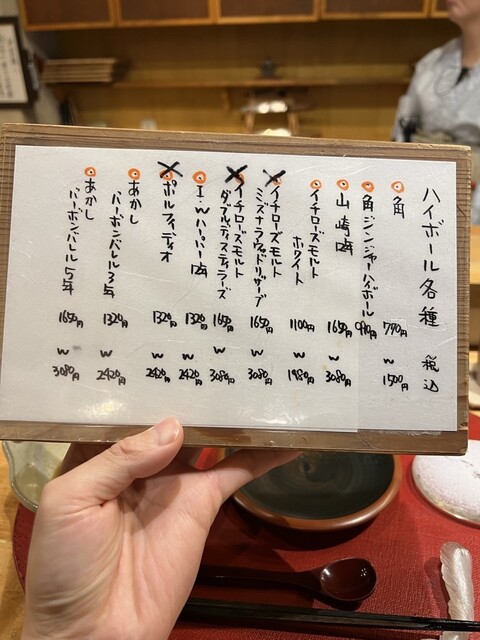 ハイボール各種 税込
角 770円 W 1500円
角ジンジャーハイボール 990円
山崎12年 1650円 W 3080円
イチローズモルト ホワイト 1100円 W 1980円
イチローズモルト ミズナラウッドリザーブ 1650円 W 3080円
イチローズモルト ダブルディスティラーズ 1650円 W 3080円
I.Wハーパー12年 1320円 W 2420円
ポルフィディオ 1320円 W 2420円
あかし バーボンバレル3年 1320円 W 2420円
あかし バーボンバレル5年 1650円 W 3080円